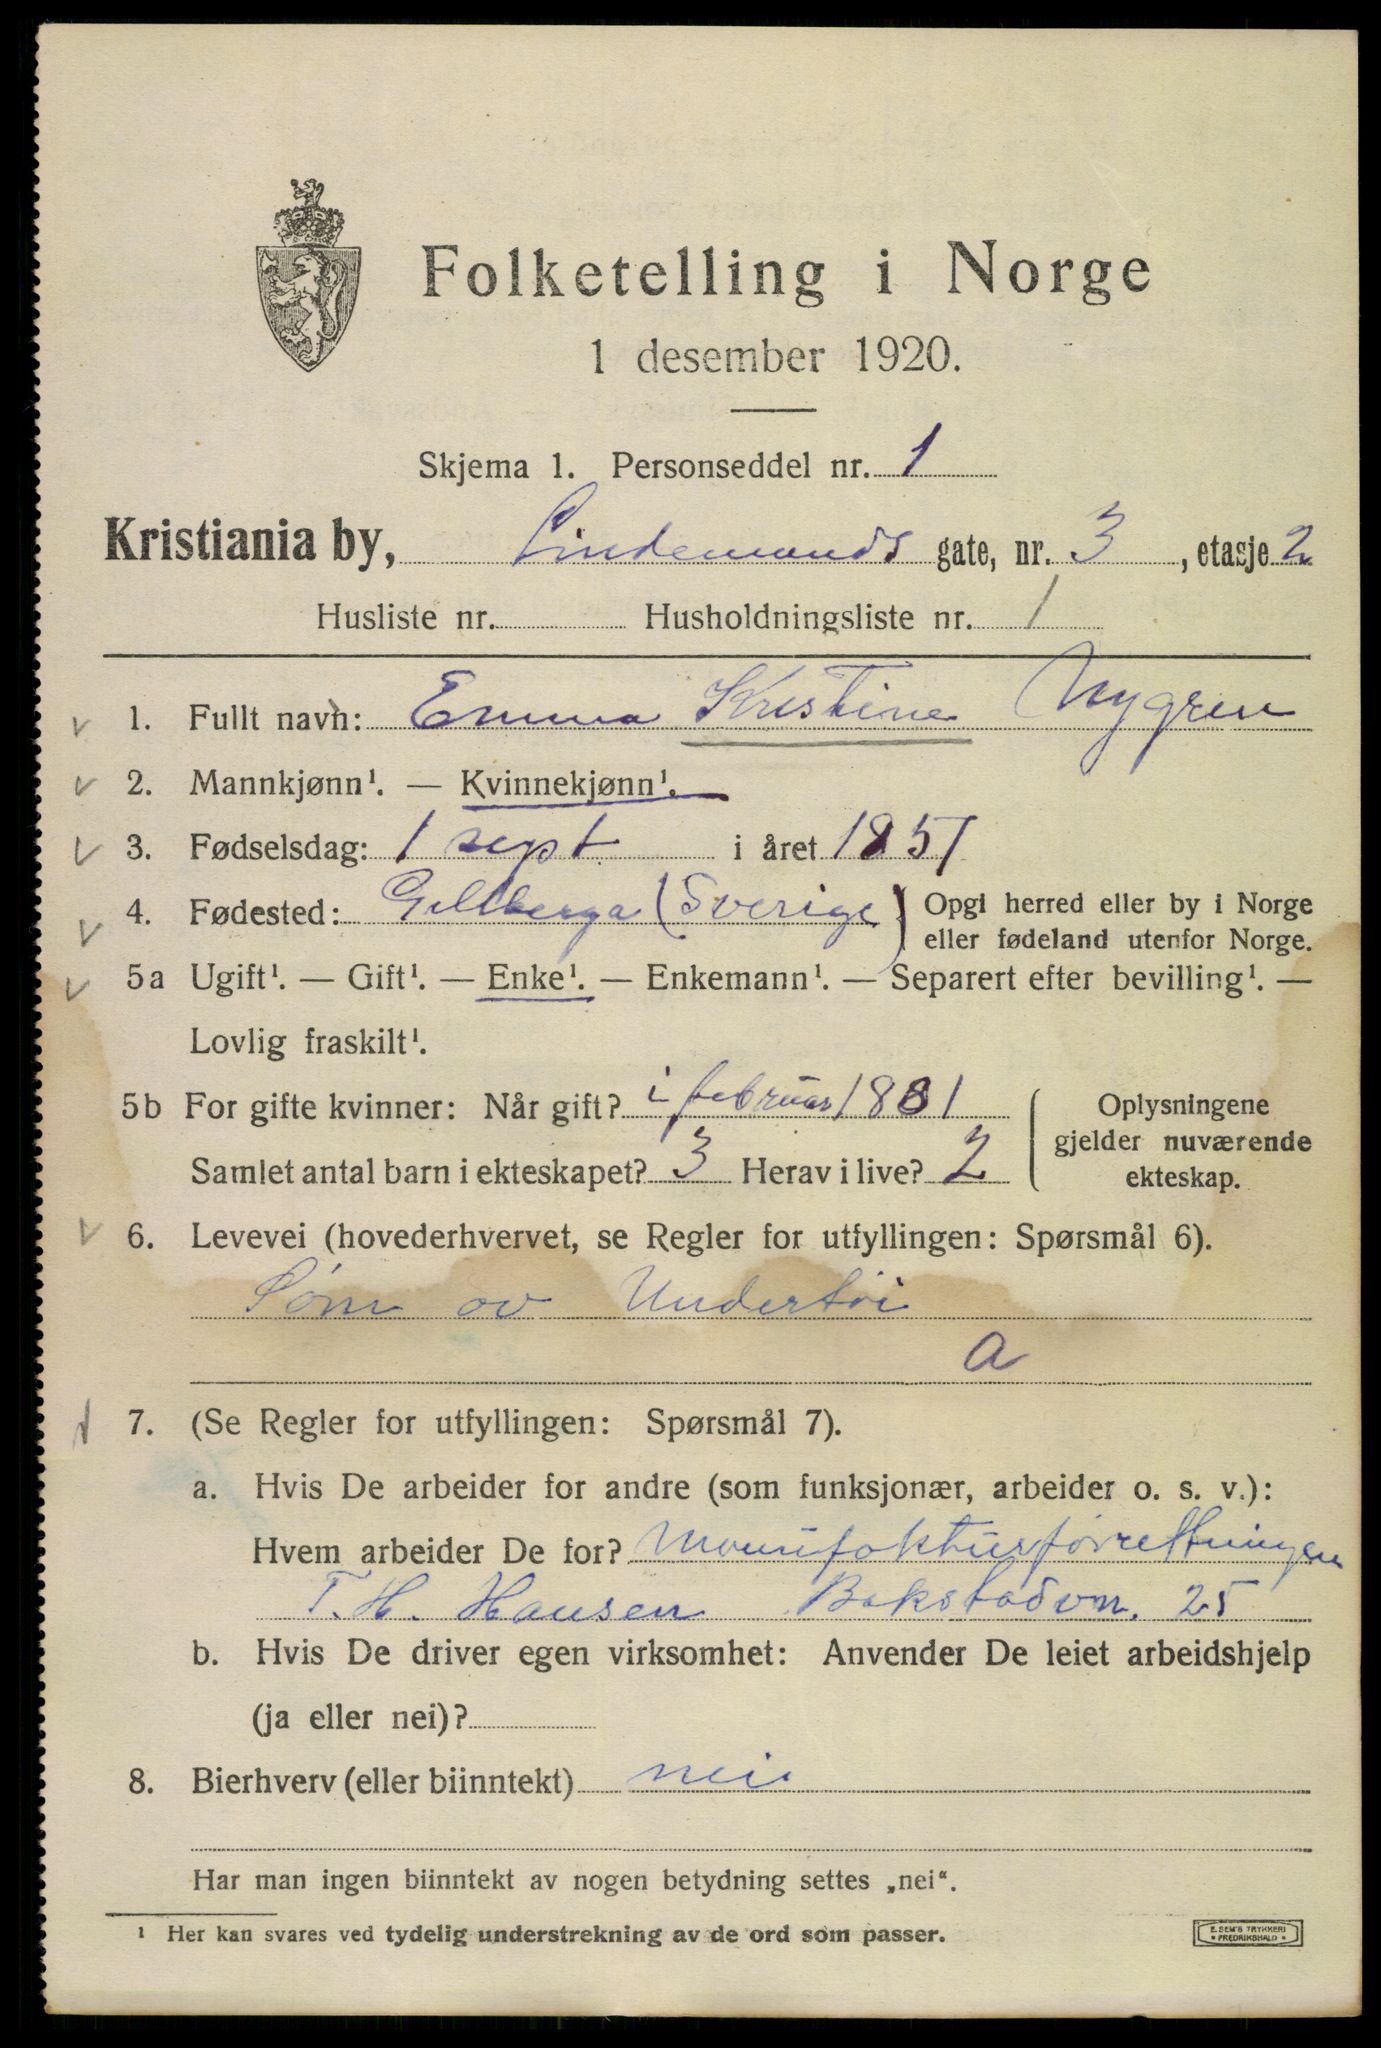 Folketelling i Norge
1 desember 1920.
Skjema 1. Personseddel nr. 1
Kristiania by, Lindemands gate, nr. 3, etasje 2
Husliste nr. Husholdningsliste nr. 1
1. Fullt navn: Emma Kristine Nygren
2. Mannkjønn¹. — Kvinnekjønn¹.
3. Fødselsdag: 1 sept i året 1857
4. Fødested: Gillberga (Sverige) Opgi herred eller by i Norge
eller fødeland utenfor Norge.
5a Ugift¹. — Gift¹. — Enke¹. — Enkemann¹. — Separert efter bevilling¹. —
Lovlig fraskilt¹.
5b For gifte kvinner: Når gift? i februar 1881 Oplysningene
gjelder nuværende
Samlet antal barn i ekteskapet? 3 Herav i live? 2 ekteskap.
6. Levevei (hovederhvervet, se Regler for utfyllingen: Spørsmål 6).
Søm av Undertøi
a
7. (Se Regler for utfyllingen: Spørsmål 7).
a. Hvis De arbeider for andre (som funksjonær, arbeider o. s. v.):
Hvem arbeider De for? Manufakturforretningen
T. H. Hansen Bokstadvn. 25
b. Hvis De driver egen virksomhet: Anvender De leiet arbeidshjelp
(ja eller nei)?
8. Bierhverv (eller biinntekt) nei
Har man ingen biinntekt av nogen betydning settes „nei“.
¹ Her kan svares ved tydelig understrekning av de ord som passer.
E. SEM'S TRYKKERI
* FREDRIKSHALD *